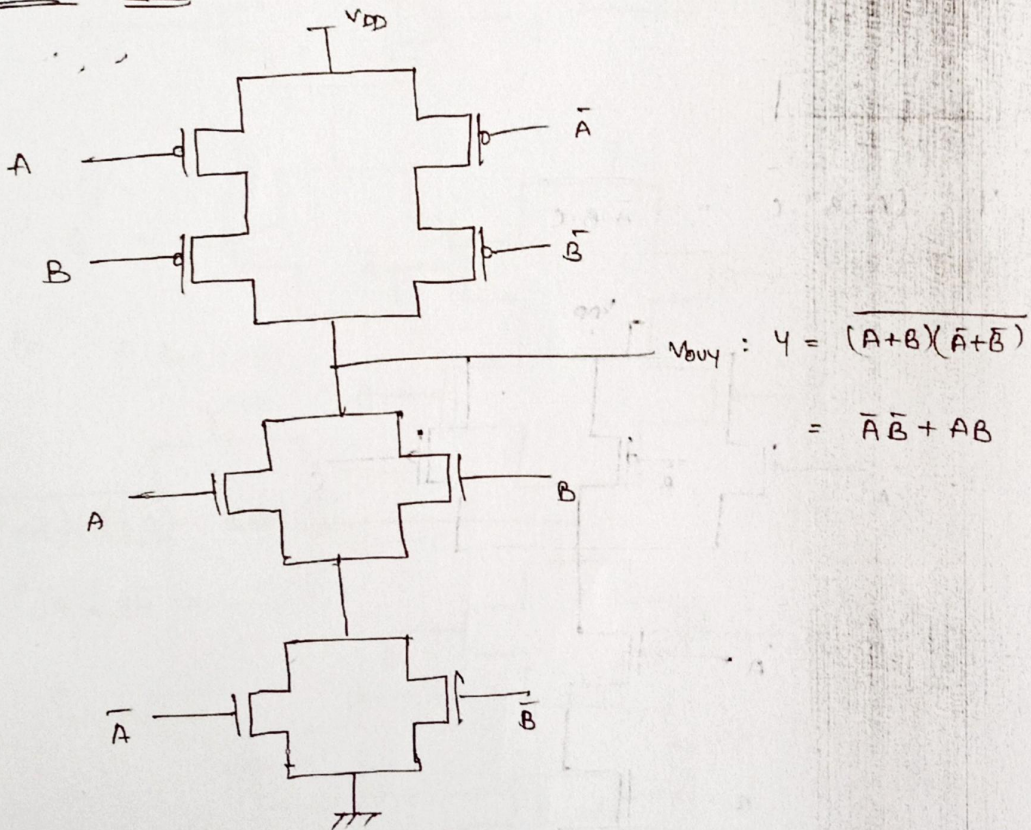 VDD
A
Ā
B
B̄
Vout : Y = \overline{(A+B)(Ā+B̄)}
= Ā B̄ + AB
A
B
Ā
B̄